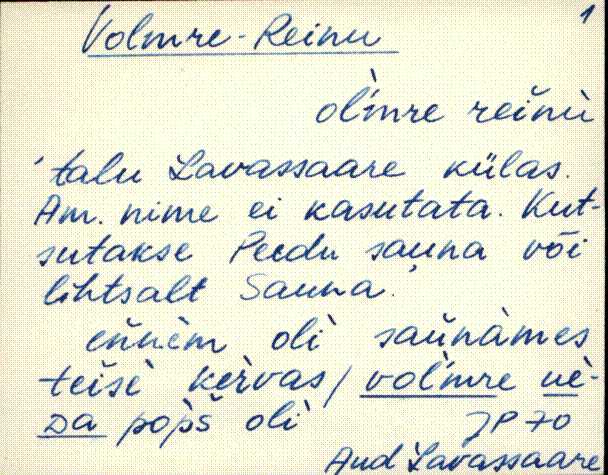 1
Volmre-Reinu
ol̀mre reinù
talu Lavassaare külas.
Am. nime ei kasutata. Kut-
sutakse Peedu sauna või
lihtsalt Sauna.
ennèm oli saunàmes
teisè kèrvas / vol̀mre
pòpš oli JP 70
Aud Lavassaare